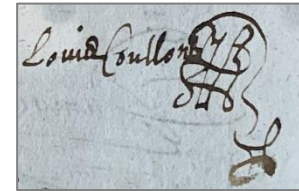 Louis Coullon